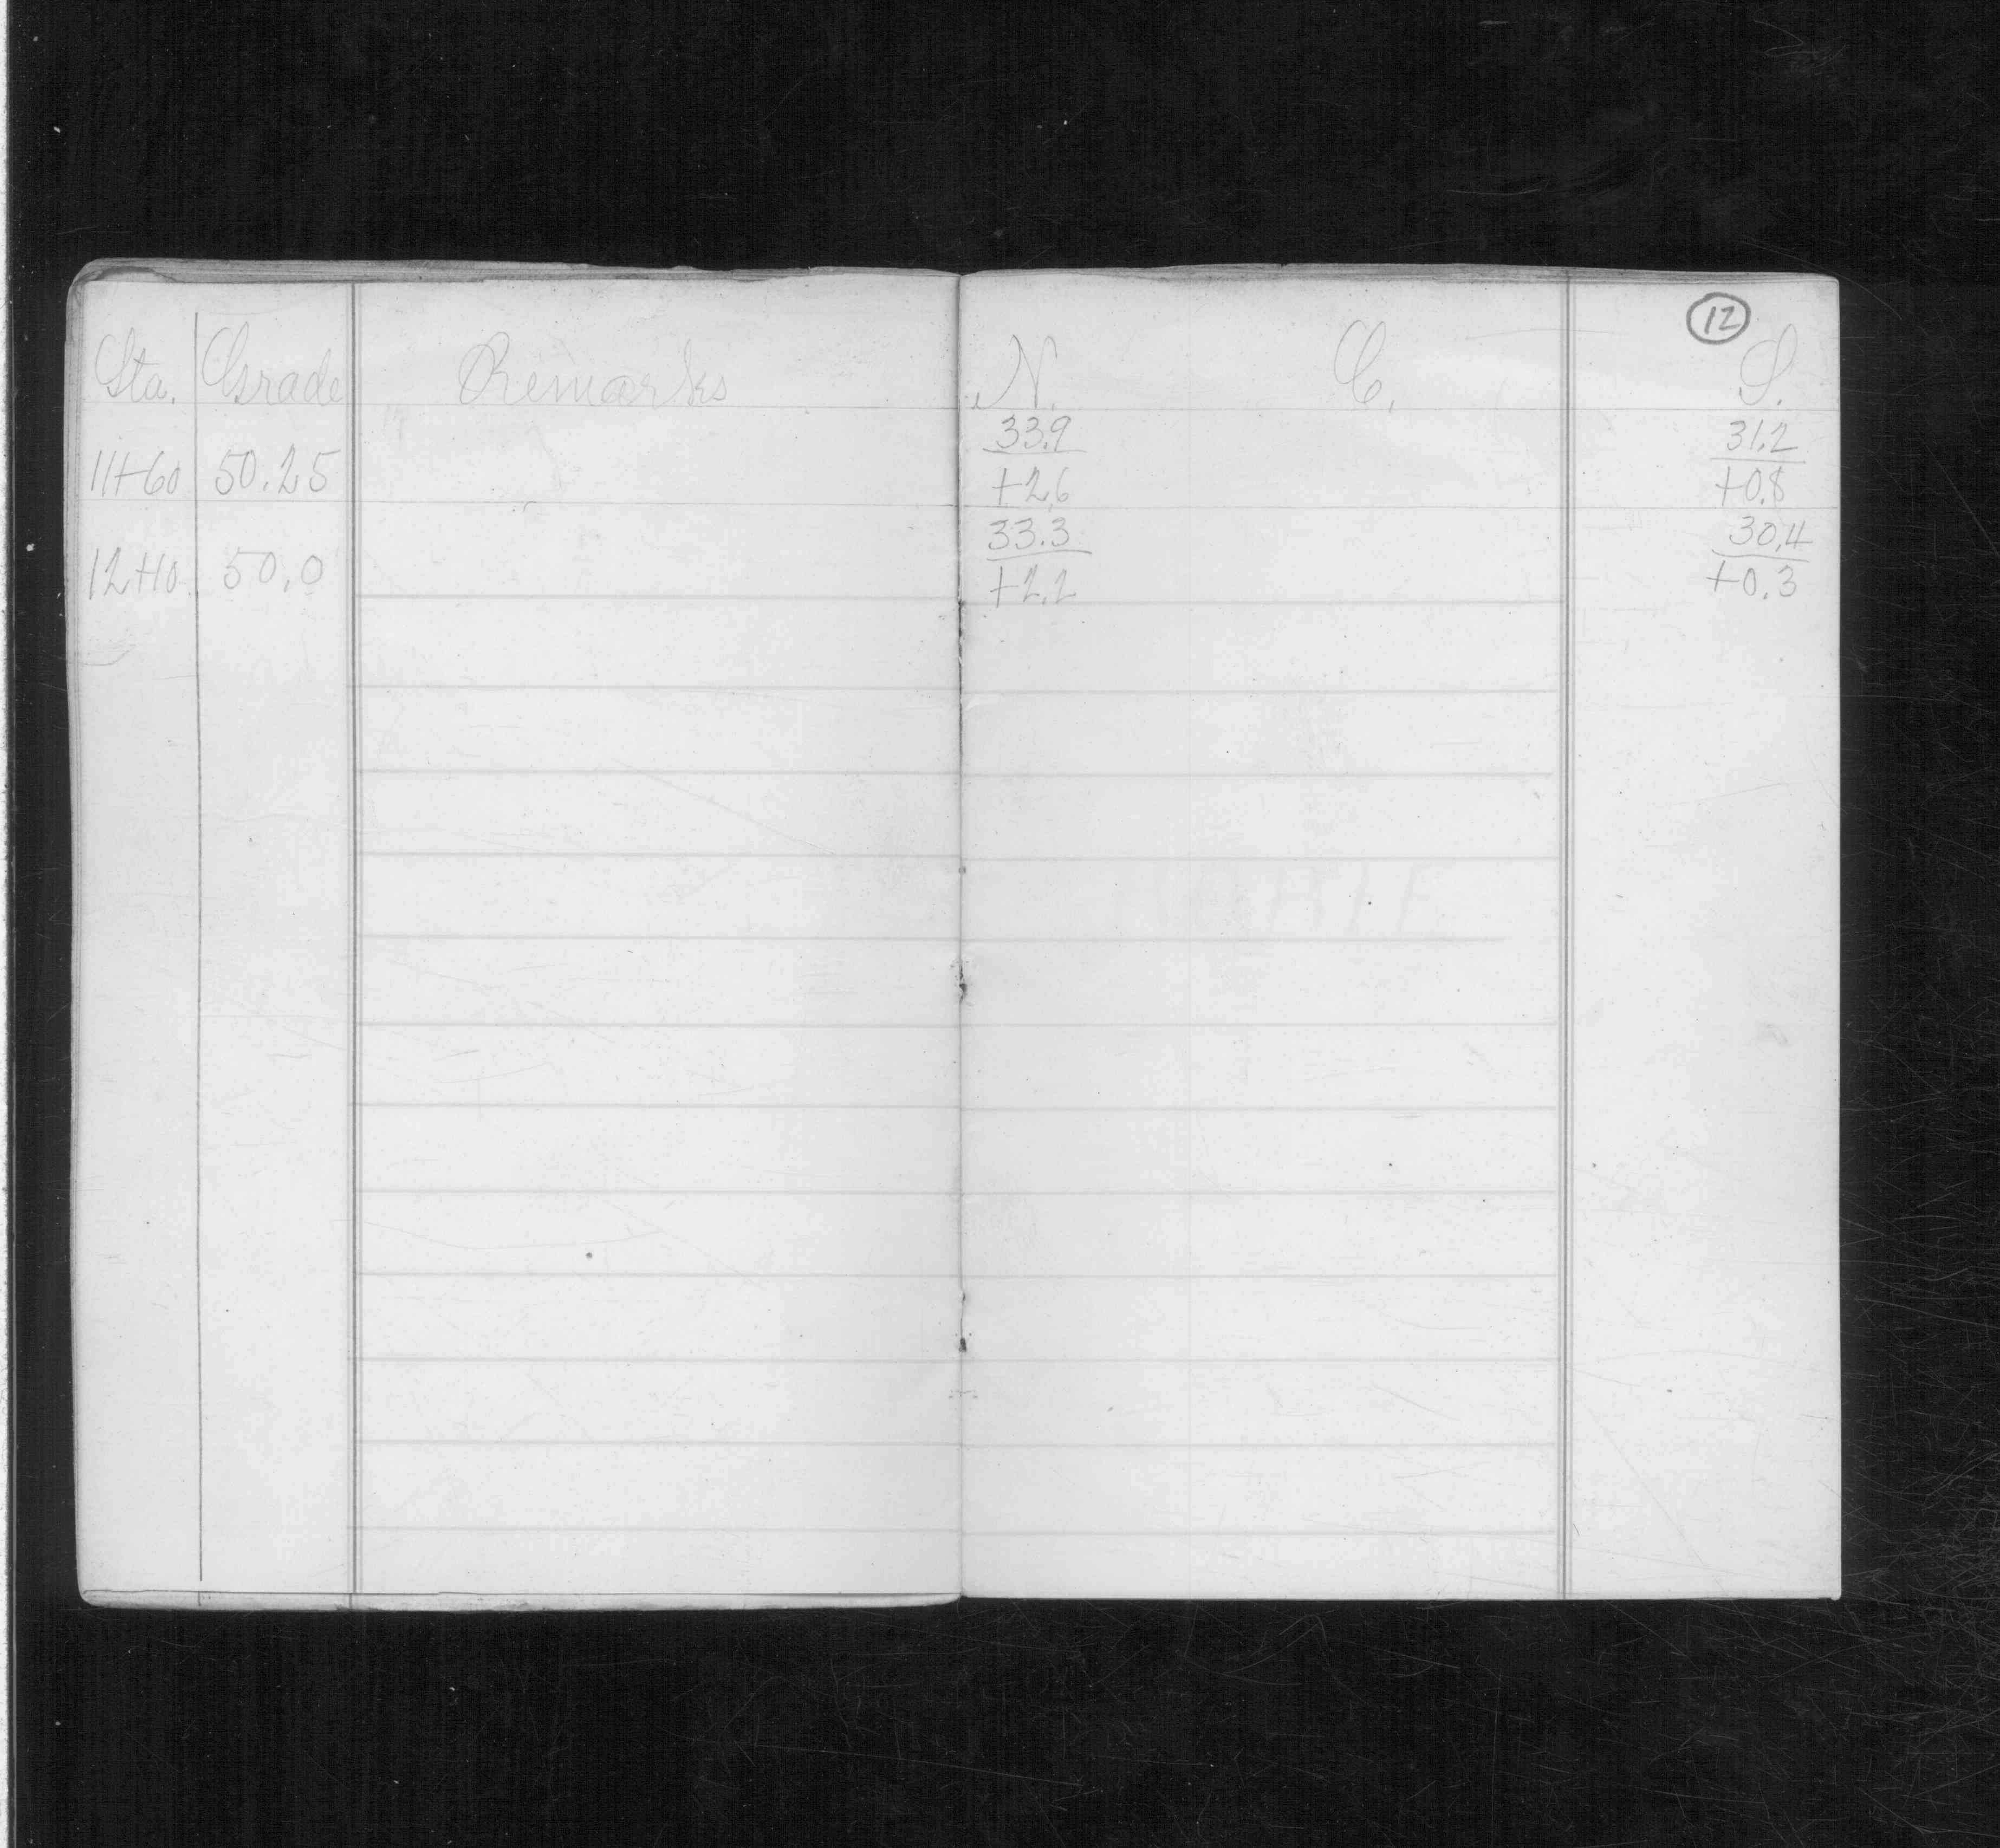 12
Sta. Grade Remarks N. C. S.
33.9 31.2
11+60 50.25 +2.6 +0.8
33.3 30.4
12+10 50.0 +2.2 +0.3